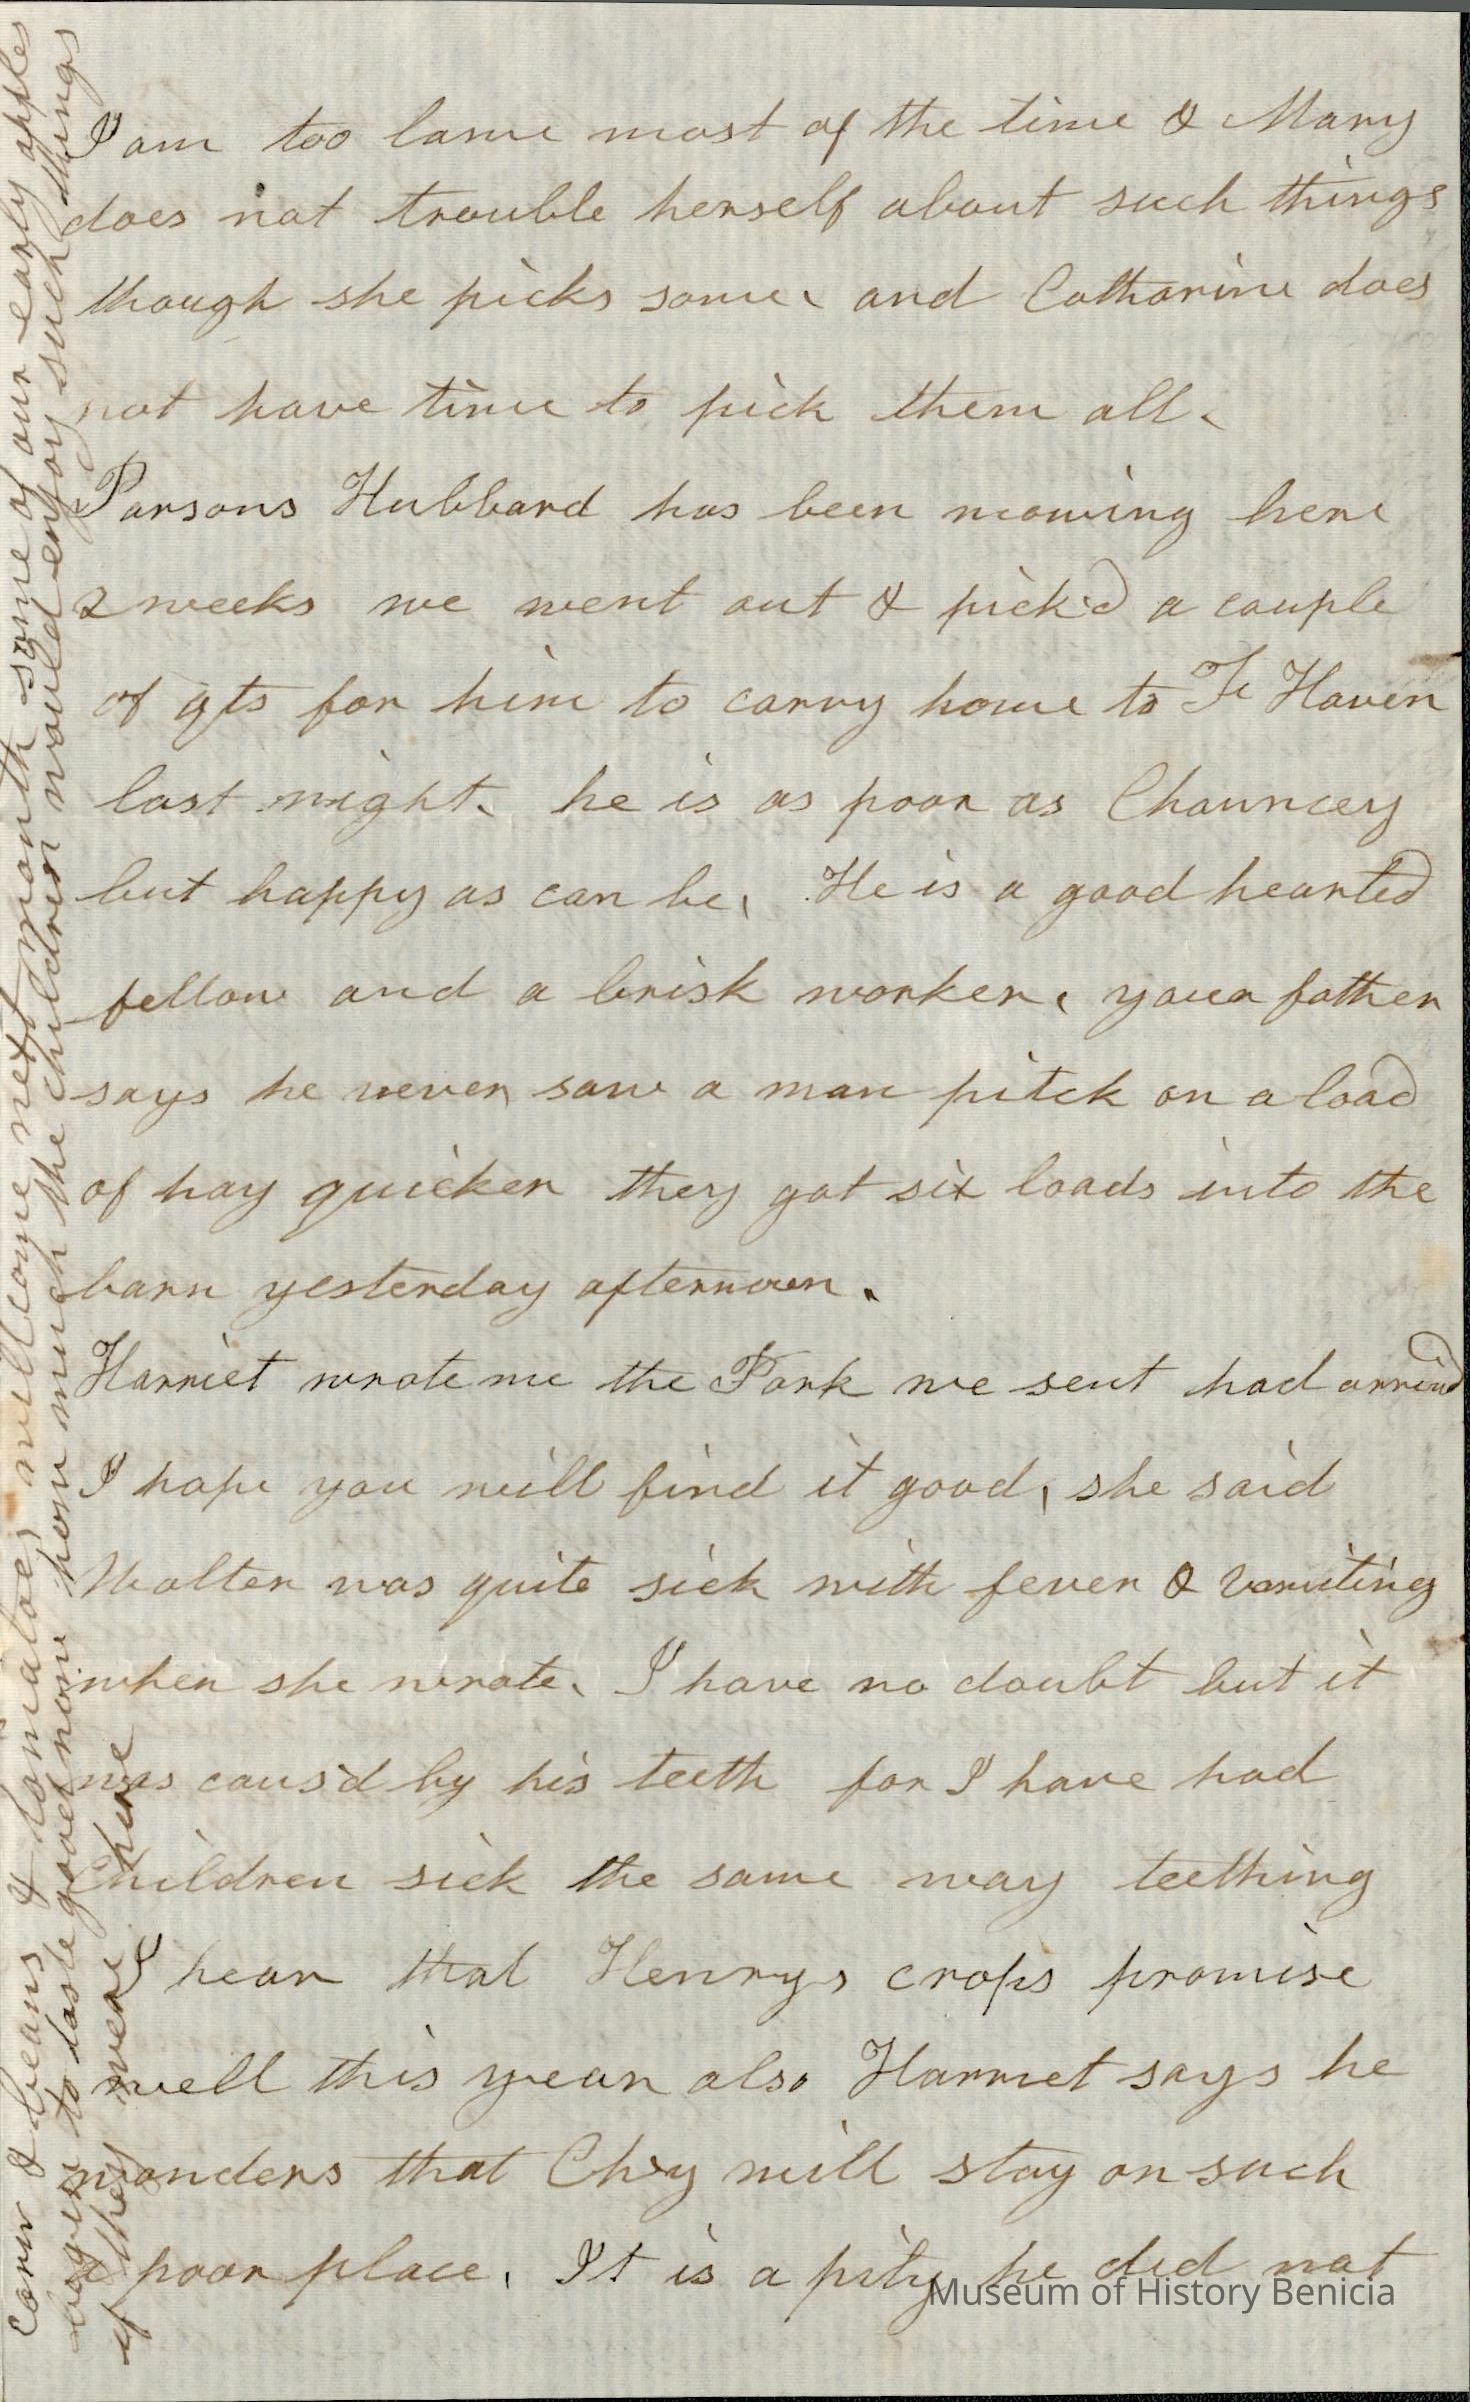 I am too lame most of the time & Mary
does not trouble herself about such things
though she picks some. and Catharine does
not have time to pick them all.
Parsons Hubbard has been mowing here
2 weeks we went out & pick'd a couple
of qts for him to carry home to Fr Haven
last night. he is as poor as Chauncey
but happy as can be. He is a good hearted
fellow and a brisk worker. your father
says he never saw a man pitch on a load
of hay quicker they got six loads into the
barn yesterday afternoon.
Harriet wrote me the Pork we sent had arrivd
I hope you will find it good, she said
Walter was quite sick with fever & vomiting
when she wrote. I have no doubt but it
was caus'd by his teeth for I have had
Children sick the same way teething
I hear that Henrys crops promise
well this year also Harriet says he
wonders that Ch'y will stay on such
a poor place. It is a pity he did not
Corn & beans & tomatoes will come next month some of our early apples
begin to taste good now how much the children would enjoy such things
if they were here
Museum of History Benicia